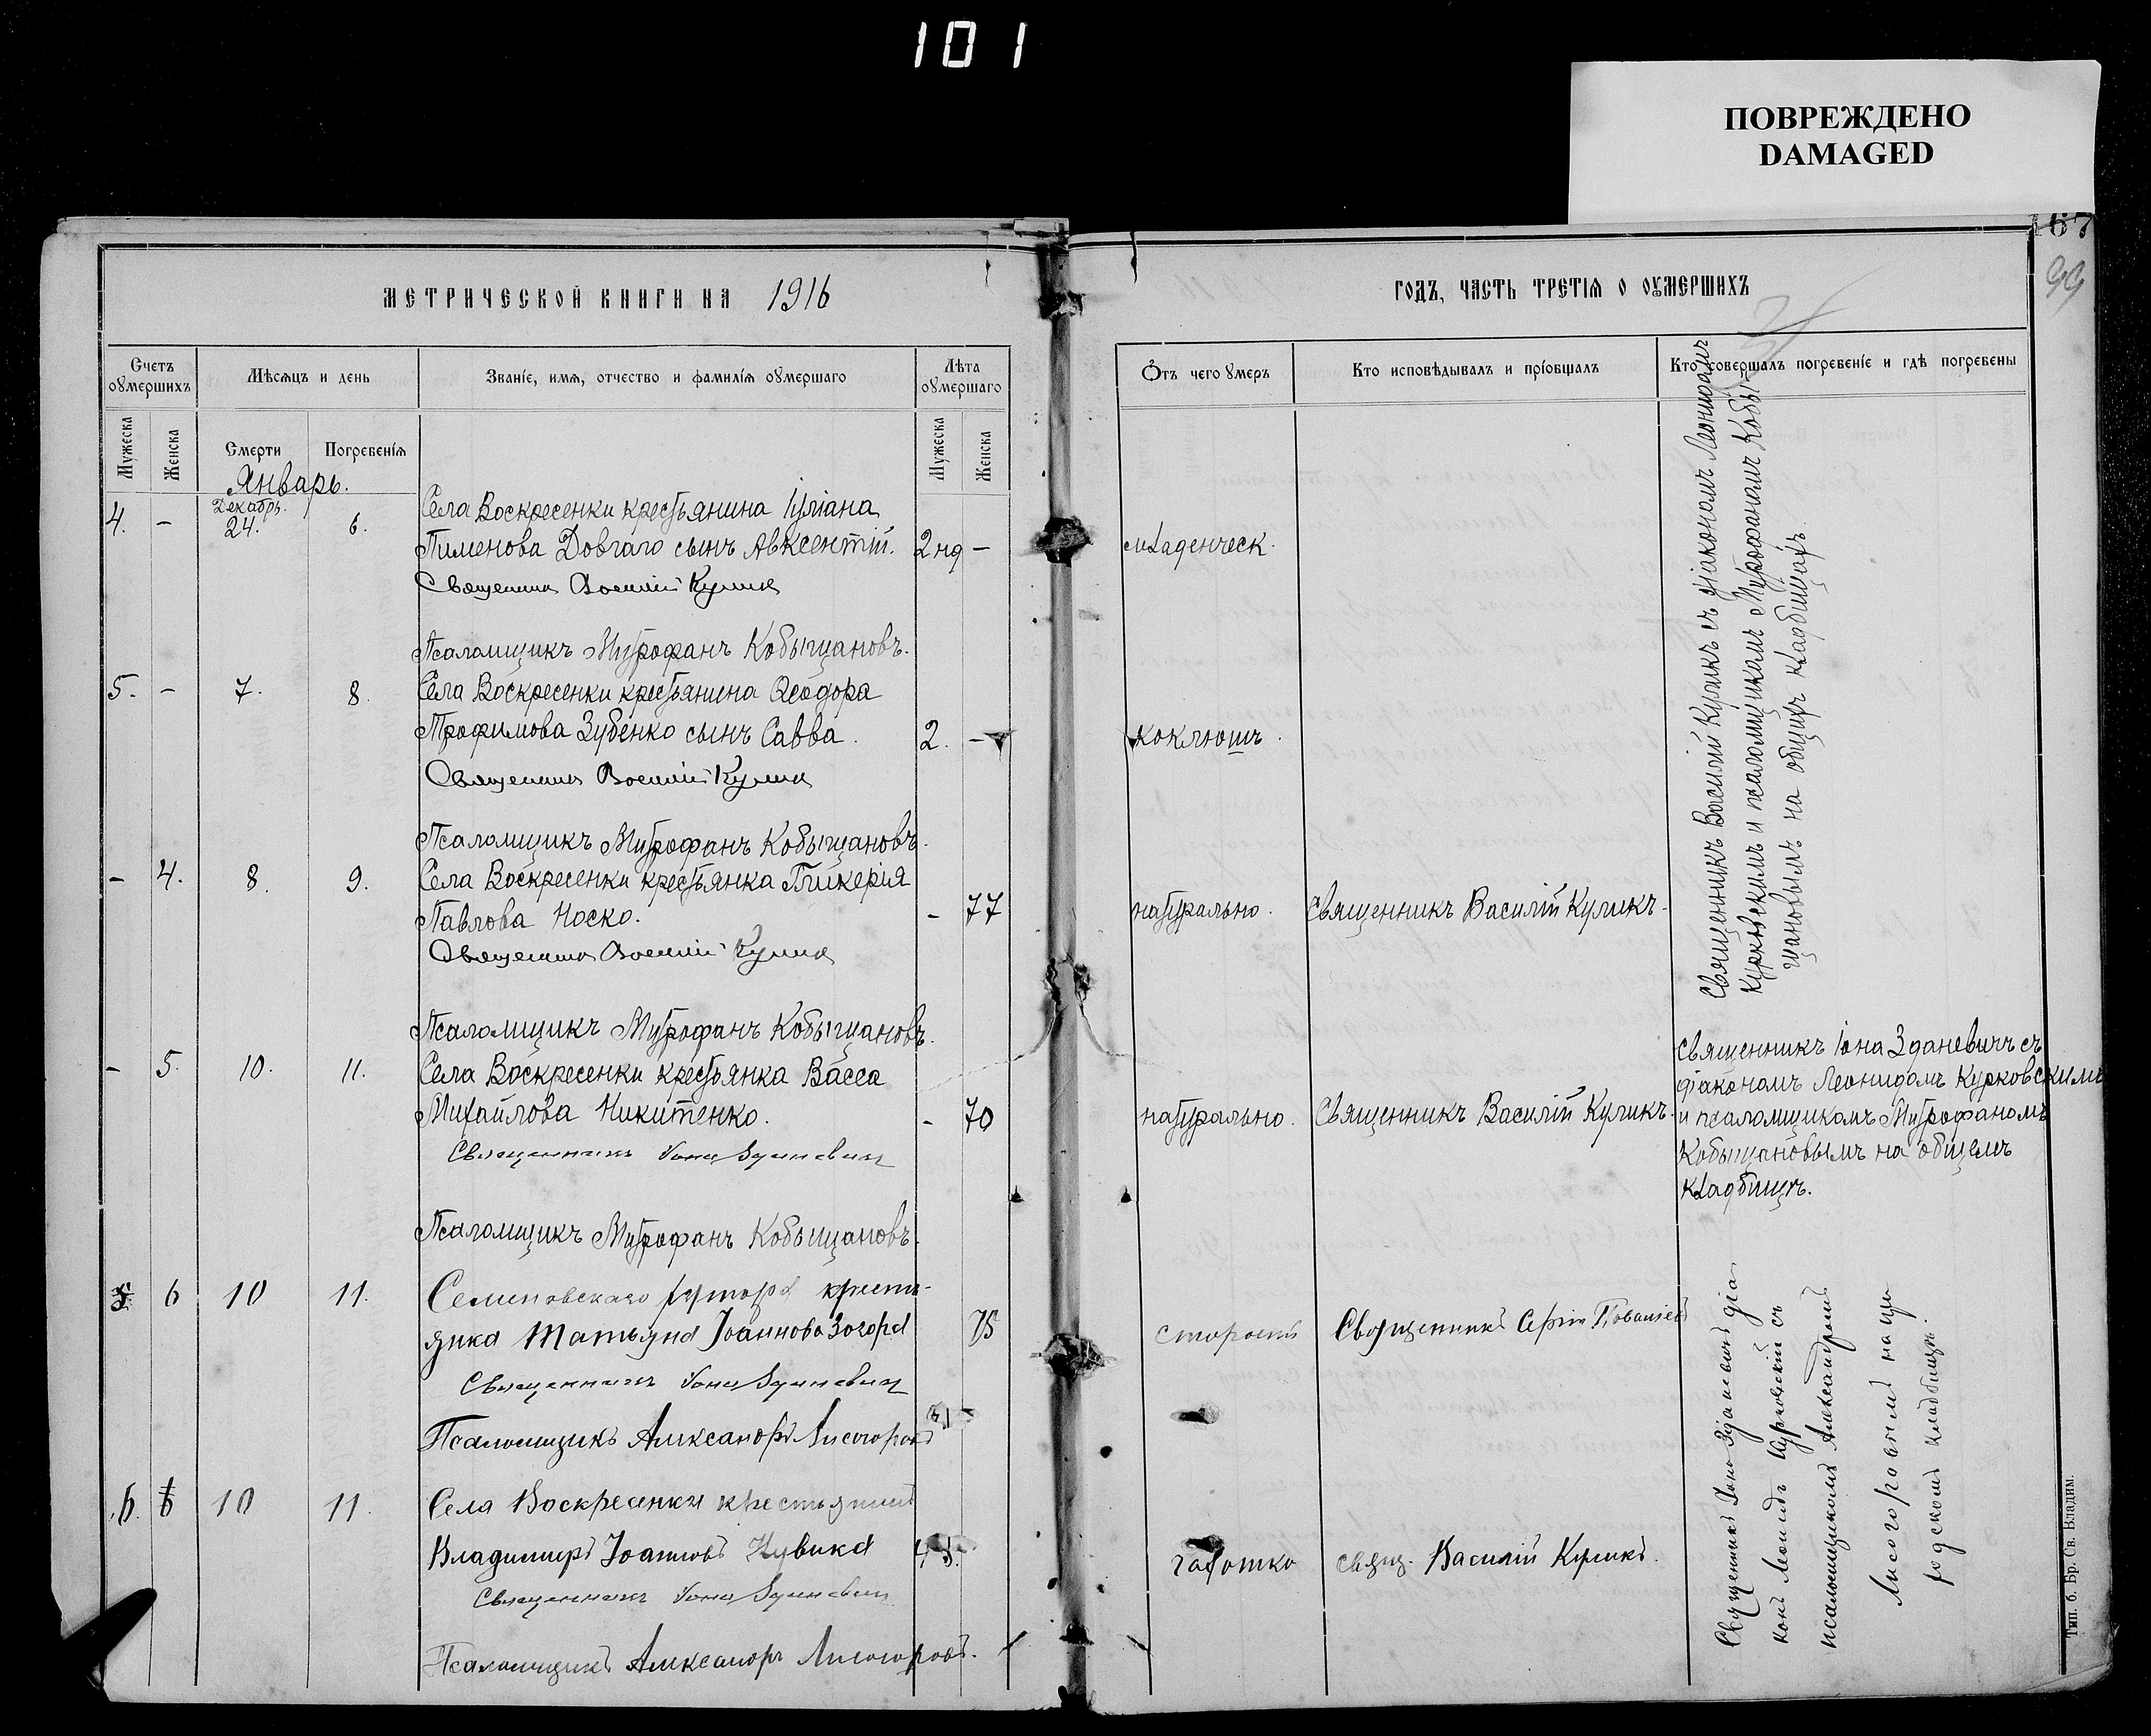 101
ПОВРЕЖДЕНО
DAMAGED
МЕТРИЧЕСКОЙ КНИГИ НА 1916
Счетъ оумершихъ
Мѣсяцъ и день
Званіе, имя, отчество и фамилія оумершаго
Лѣта оумершаго
Мужеска
Женска
Смерти
Погребенія
Мужеска
Женска
Январь.
Декабрь.
4. - 24. 6.
Села Воскресенки крестьянина Іуліана
Пименова Довгаго сынъ Авксентій. 2 нд -
Священникъ Василій Куликъ
Псаломщикъ Митрофанъ Кобыщановъ.
5. - 7. 8. Села Воскресенки крестьянина Ѳеодора
Трофимова Зубенко сынъ Савва. 2. -
Священникъ Василій Куликъ
Псаломщикъ Митрофанъ Кобыщановъ.
- 4. 8. 9. Села Воскресенки крестьянка Гликерія
Павлова Носко. - 77
Священникъ Василій Куликъ
Псаломщикъ Митрофанъ Кобыщановъ.
- 5. 10. 11. Села Воскресенки крестьянка Васса
Михайлова Никитенко. - 70
Священникъ Іона Зданевичъ
Псаломщикъ Митрофанъ Кобыщановъ.
6 10 11. Семеновскаго хутора кресть-
янка Татьяна Іоаннова 75
Священникъ Іона Зданевичъ
Псаломщикъ Александръ Лисогоровъ
6. 10 11. Села Воскресенки крестьянинъ
Владимиръ Іоанновъ
Священникъ Іона Зданевичъ
Псаломщикъ Александръ Лисогоровъ.
67
99
ГОДЪ, ЧАСТЬ ТРЕТІЯ О ОУМЕРШИХЪ
Ѿтъ чего умеръ
Кто исповѣдывалъ и пріобщалъ
Кто совершалъ погребеніе и гдѣ погребены
младенческ.
коклюшъ.
натурально. Священникъ Василій Куликъ.
Священникъ Василій Куликъ съ діакономъ Леонидомъ
Курковскимъ и псаломщикомъ Митрофаномъ Кобы-
щановымъ на общихъ кладбищахъ.
натурально. Священникъ Василій Куликъ.
Священникъ Іона Зданевичъ съ
діакономъ Леонидомъ Курковскимъ
и псаломщикомъ Митрофаномъ
Кобыщановымъ на общемъ
кладбищѣ.
Священникъ
чахотка свящ. Василій Куликъ.
Священникъ Іона Зданевичъ діа-
конъ Леонидъ Курковскій съ
псаломщикомъ Александромъ
Лисогоровымъ на при-
ходскомъ кладбищѣ.
Тип. б. Бр. Св. Владим.